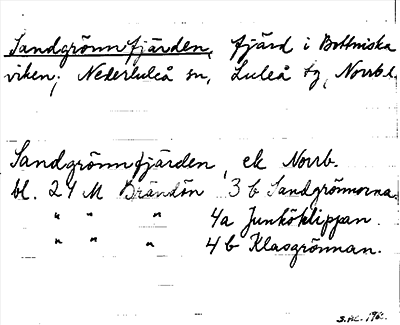 Sandgrönnfjärden, fjärd i Bottniska
viken; Nederluleå sn, Luleå tg, Norrb.l.
Sandgrönnfjärden, ek Norrb.
bl. 24 M Brändön 3 b Sandgrönnorna.
" " " 4a Junköklippan.
" " " 4 b Klasgrönnan.